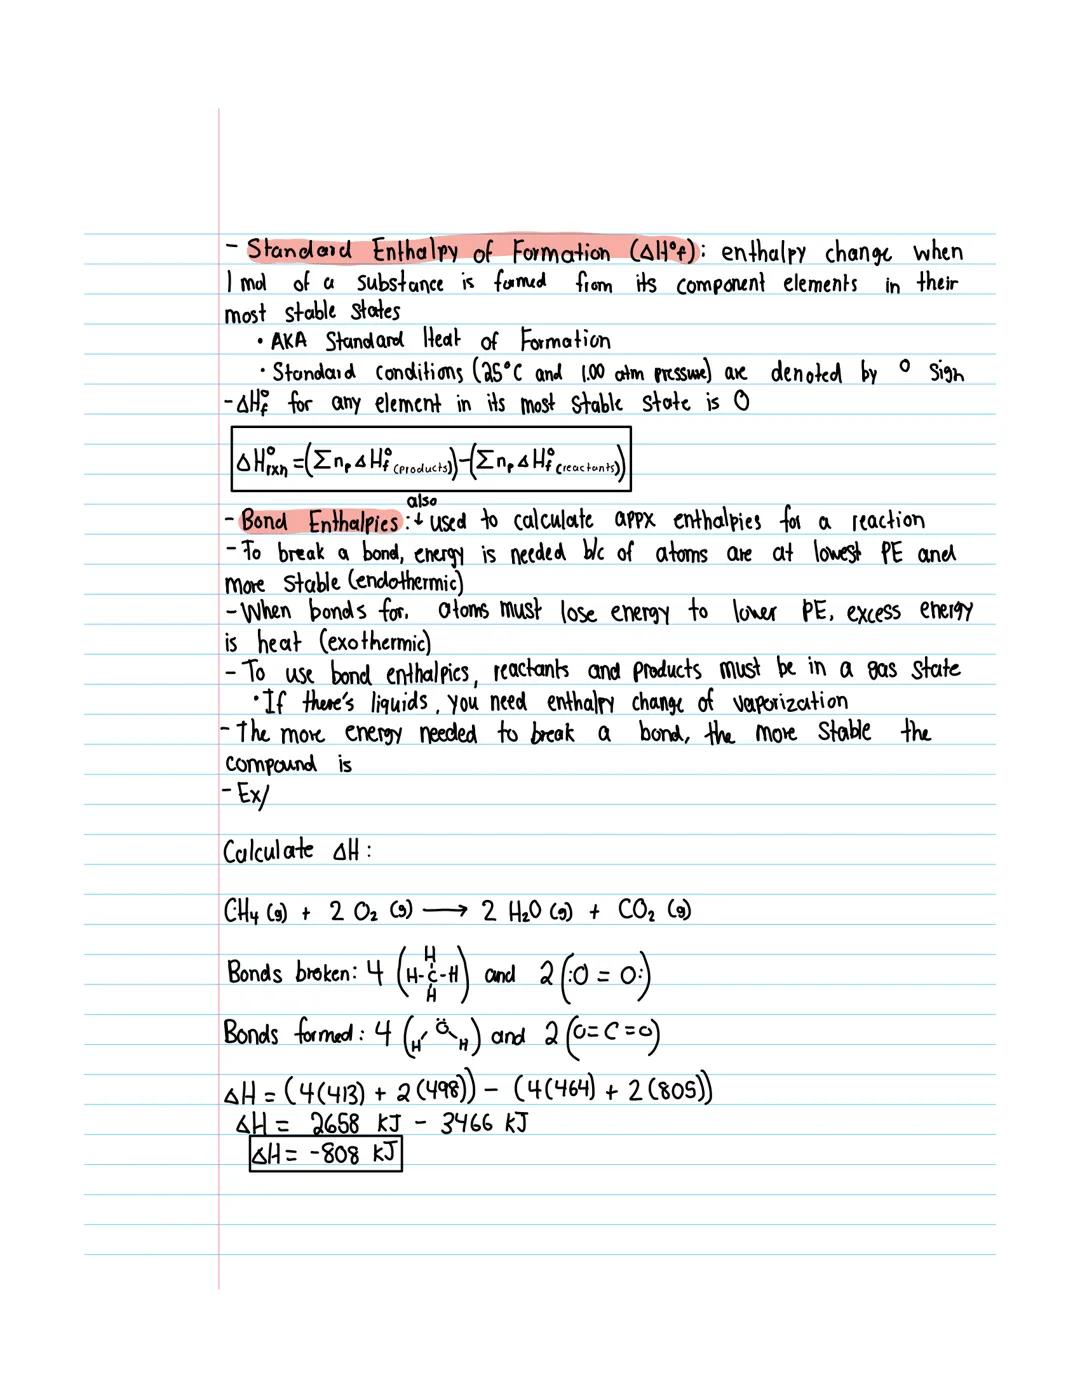 - Standard Enthalpy of Formation (ΔH°f): enthalpy change when
1 mol of a substance is formed from its component elements in their
most stable states
• AKA Standard Heat of Formation
• Standard conditions (25°C and 1.00 atm pressure) are denoted by ° sign
- ΔH°f for any element in its most stable state is 0
ΔH°rxn = (Σnp ΔH°f (products)) - (Σnp ΔH°f (reactants))
also
- Bond Enthalpies: ↓ used to calculate appx enthalpies for a reaction
- To break a bond, energy is needed b/c of atoms are at lowest PE and
more stable (endothermic)
- When bonds for, atoms must lose energy to lower PE, excess energy
is heat (exothermic)
- To use bond enthalpies, reactants and products must be in a gas state
• If there's liquids, you need enthalpy change of vaporization
- The more energy needed to break a bond, the more stable the
compound is
- Ex/
Calculate ΔH:
CH₄ (g) + 2 O₂ (g) ⟶ 2 H₂O (g) + CO₂ (g)
H
Bonds broken: 4 (H-C-H) and 2 (:O = O:)
H
Bonds formed: 4 (H Ö H) and 2 (O=C=O)
ΔH = (4(413) + 2(498)) - (4(464) + 2(805))
ΔH = 2658 KJ - 3466 KJ
ΔH = -808 KJ